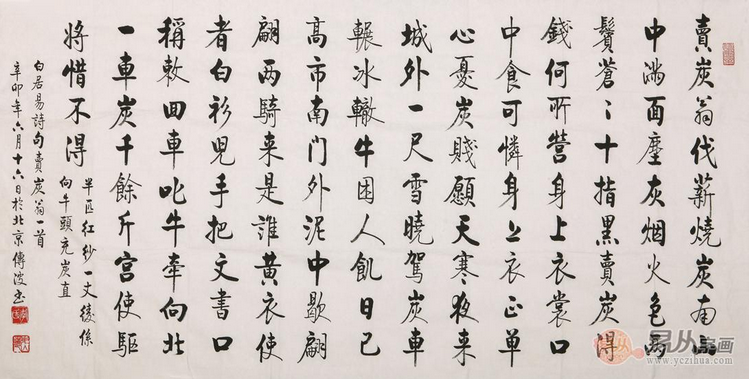 賣炭翁伐薪燒炭南山
中滿面塵灰烟火色兩
鬢蒼〻十指黑賣炭得
錢何所營身上衣裳口
中食可憐身上衣正單
心憂炭賤願天寒夜来
城外一尺雪曉駕炭車
輾冰轍牛困人飢日已
高市南門外泥中歇翩
翩兩騎来是誰黄衣使
者白衫兒手把文書口
稱敕回車叱牛牽向北
一車炭千餘斤宫使驅
將惜不得
半匹紅紗一丈綾係
向牛頭充炭直
白居易詩句賣炭翁一首
辛卯年六月十六日於北京傳波书
易从字画
www.yczihua.com